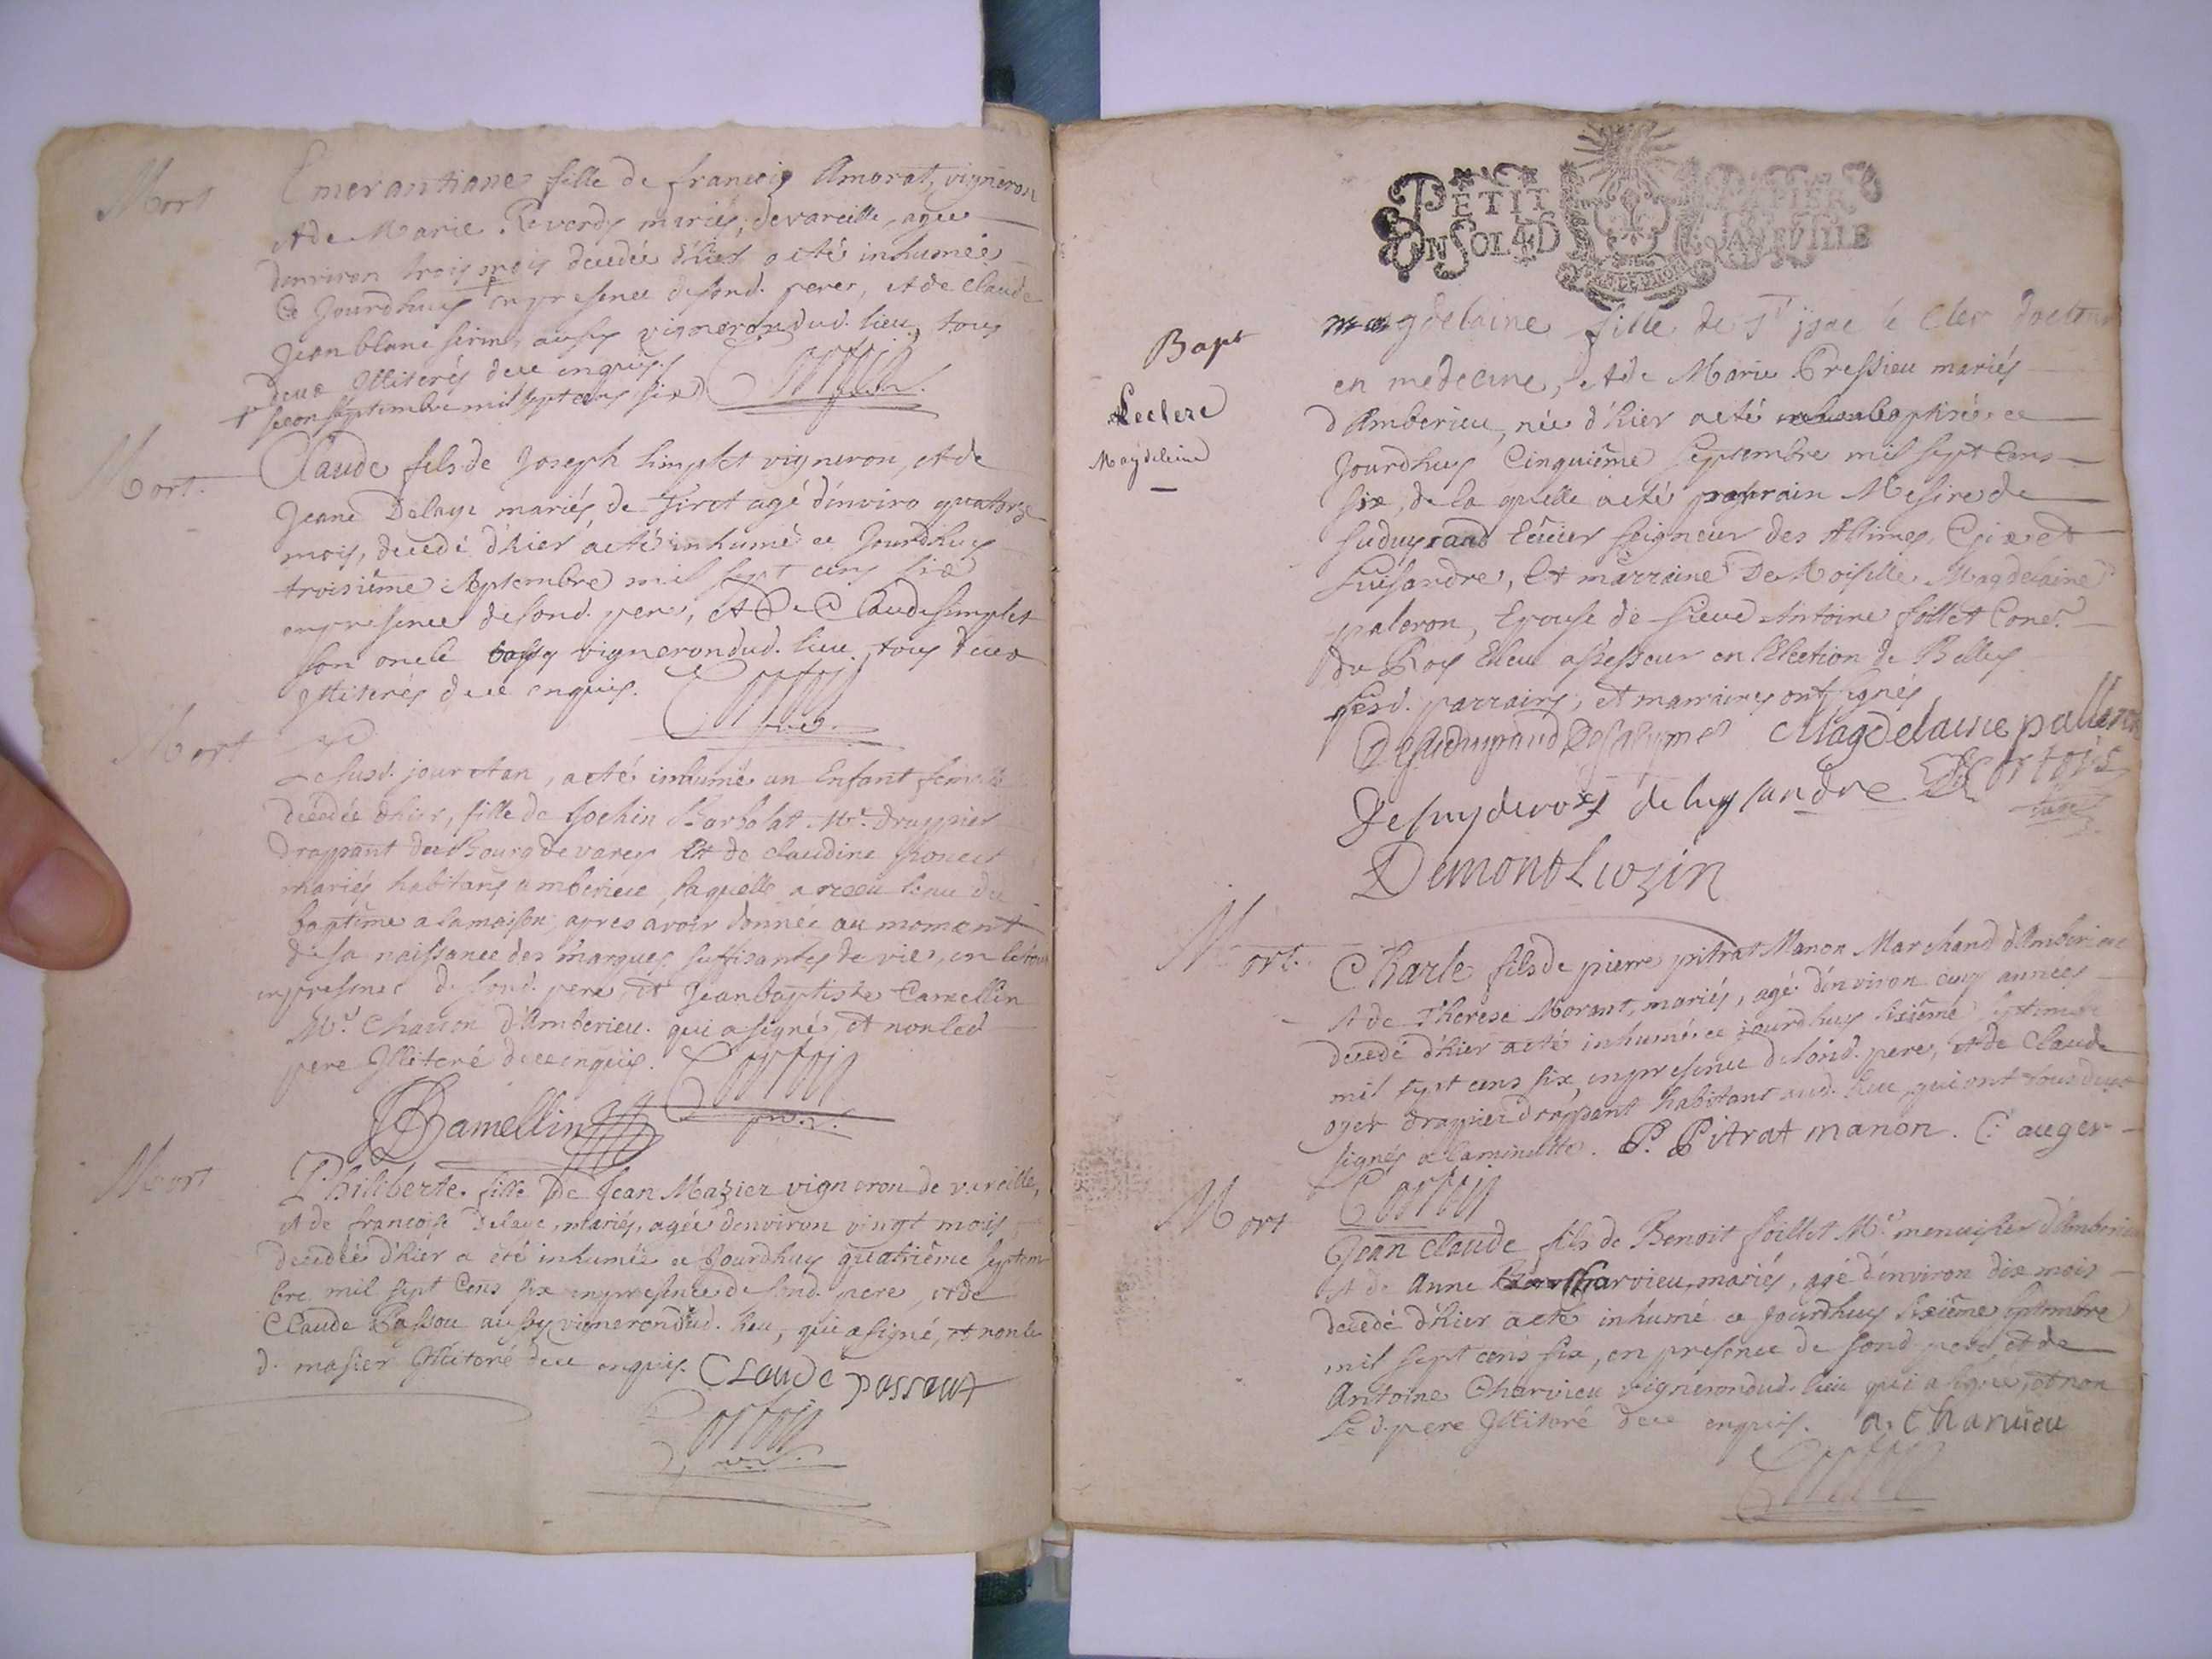 Mort
Emerantiane fille de françois Amorat, vigneron
et de Marie Reverdy mariés, de vareille, agée
denviron trois mois decedée d'hier a eté inhumée
ce Jourdhuy en presence de sond. pere, et de Claude
Jean blanc serin aussy vigneron dud. lieu, tous
deux Illiterés dece enquis.
+ second septembre mil sept cens six
Cortois
Mort.
Claude fils de Joseph simplet vigneron, et de
Jeane Delaye mariés de Tiret agé d'enviro quatorze
mois, decedé d'hier a eté inhumé ce Jourdhuy
troisième Septembre mil sept cens six
en presence de sond. pere, et de Claude simplet
son oncle aussy vigneron dud. lieu, tous deux
Illiterés dece enquis.
Cortois
Mort
Lesusd. jour et an, a eté inhumé un Enfant
decedée dhier, fille de Jochin Barbolat Mre. drappier
drappant du Bourg de varey et de claudine
mariés habitans amberieu, laquelle a receu l'eau du
baptême a la maison, apres avoir donnée au moment
de sa naissance des marques suffisantes de vie, en
en presence de sond. pere, et Jean baptiste Camellin
Me. Charon d'Amberieu. qui a signé, et non led
pere Illiteré dece enquis. Cortois
JB Camellin
Mort
Philiberte. fille de Jean Mazier vigneron de vareille,
et de francoise Delaye, mariés, agée denviron vingt mois,
decedée d'hier a eté inhumée ce Jourdhuy quatrième septem
bre mil sept Cens six en presence de sond. pere, et de
Claude Passou aussy vigneron dud. lieu, qui a signé, et non le
d. masier Illiteré dece enquis. CLaude passaut
Cortois
PETIT PAPIER
UN SOL 4D LA FEUILLE
Bapt
Leclerc
Magdeleine
magdelaine fille de Sr jsac le Cler docteur
en medecine, et de Marie Pressieu mariés
d'Amberieu, née d'hier a eté baptisée ce
Jourdhuy Cinquième Septembre mil sept Cens
six, de la quelle a eté parrain Messire de
suduyraud Ecuier seigneur des Allimes, et
Luisandre, Et marraine DeMoiselle Magdelaine
paleron, Epouse de sieur Antoine follet Coner.
du Roy Eleu assesseur en l'Election de Belley
lesd. parrains, et marraines ont signés
De suduyraud Des Alymes Magdelaine palleron
De luysandre Cortois
curé
Demontluzin
Mort.
Charle fils de pierre pitrat Manon Marchand d'Amberieu
et de Therese Morant, mariés, agé d'environ cinq années
decedé d'hier a eté inhumé ce jourdhuy sixième septembre
mil sept cens six, en presence de sond. pere, et de Claude
oger drappier drappant habitans aud. lieu, qui ont tous deux
signés a la minutte. P. Pitrat manon. C: auger
Cortois
Mort
Jean Claude fils de Benoit foillet Me. menuisier d'Amberieu
et de Anne Charvieu, mariés, agé d'environ dix mois
decedé d'hier a eté inhumé ce Jourdhuy sixième septembre
mil sept cens six, en presence de sond. pere, et de
Antoine Charvieu vigneron dud. lieu qui a signé, et non
led. pere Illiteré dece enquis. a. Charvieu
Cortois